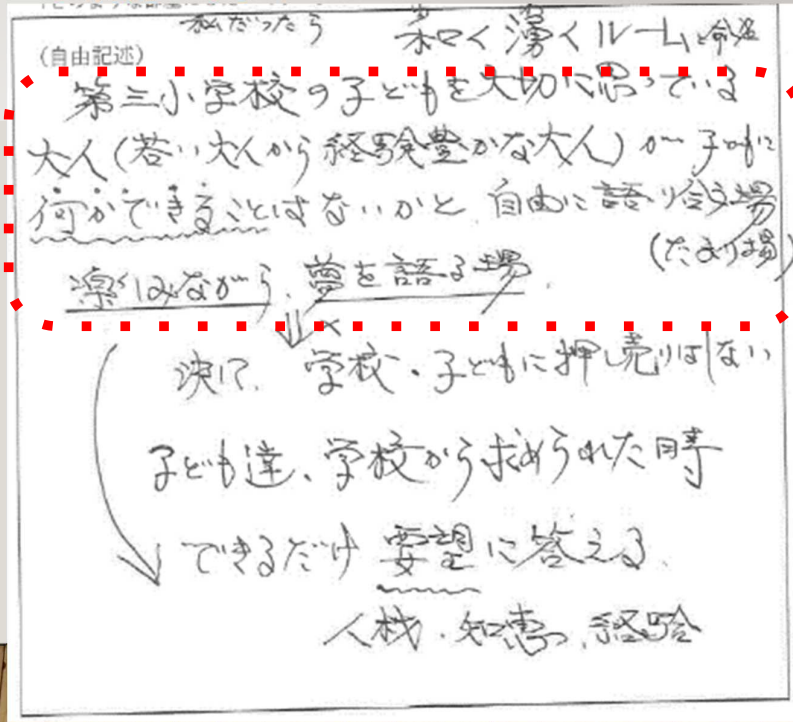 私だったら 和く湧くルームと命名
(自由記述)
第三小学校の子どもを大切に思っている
大人(若い大人から経験豊かな大人)が子ども に
何かできることはないかと、自由に語り合う場
(たまり場)
楽しみながら、夢を語る場.
決して、学校・子どもに押し売りはしない
子ども達、学校から求められた時
できるだけ 要望に答える.
人材・知恵、経験